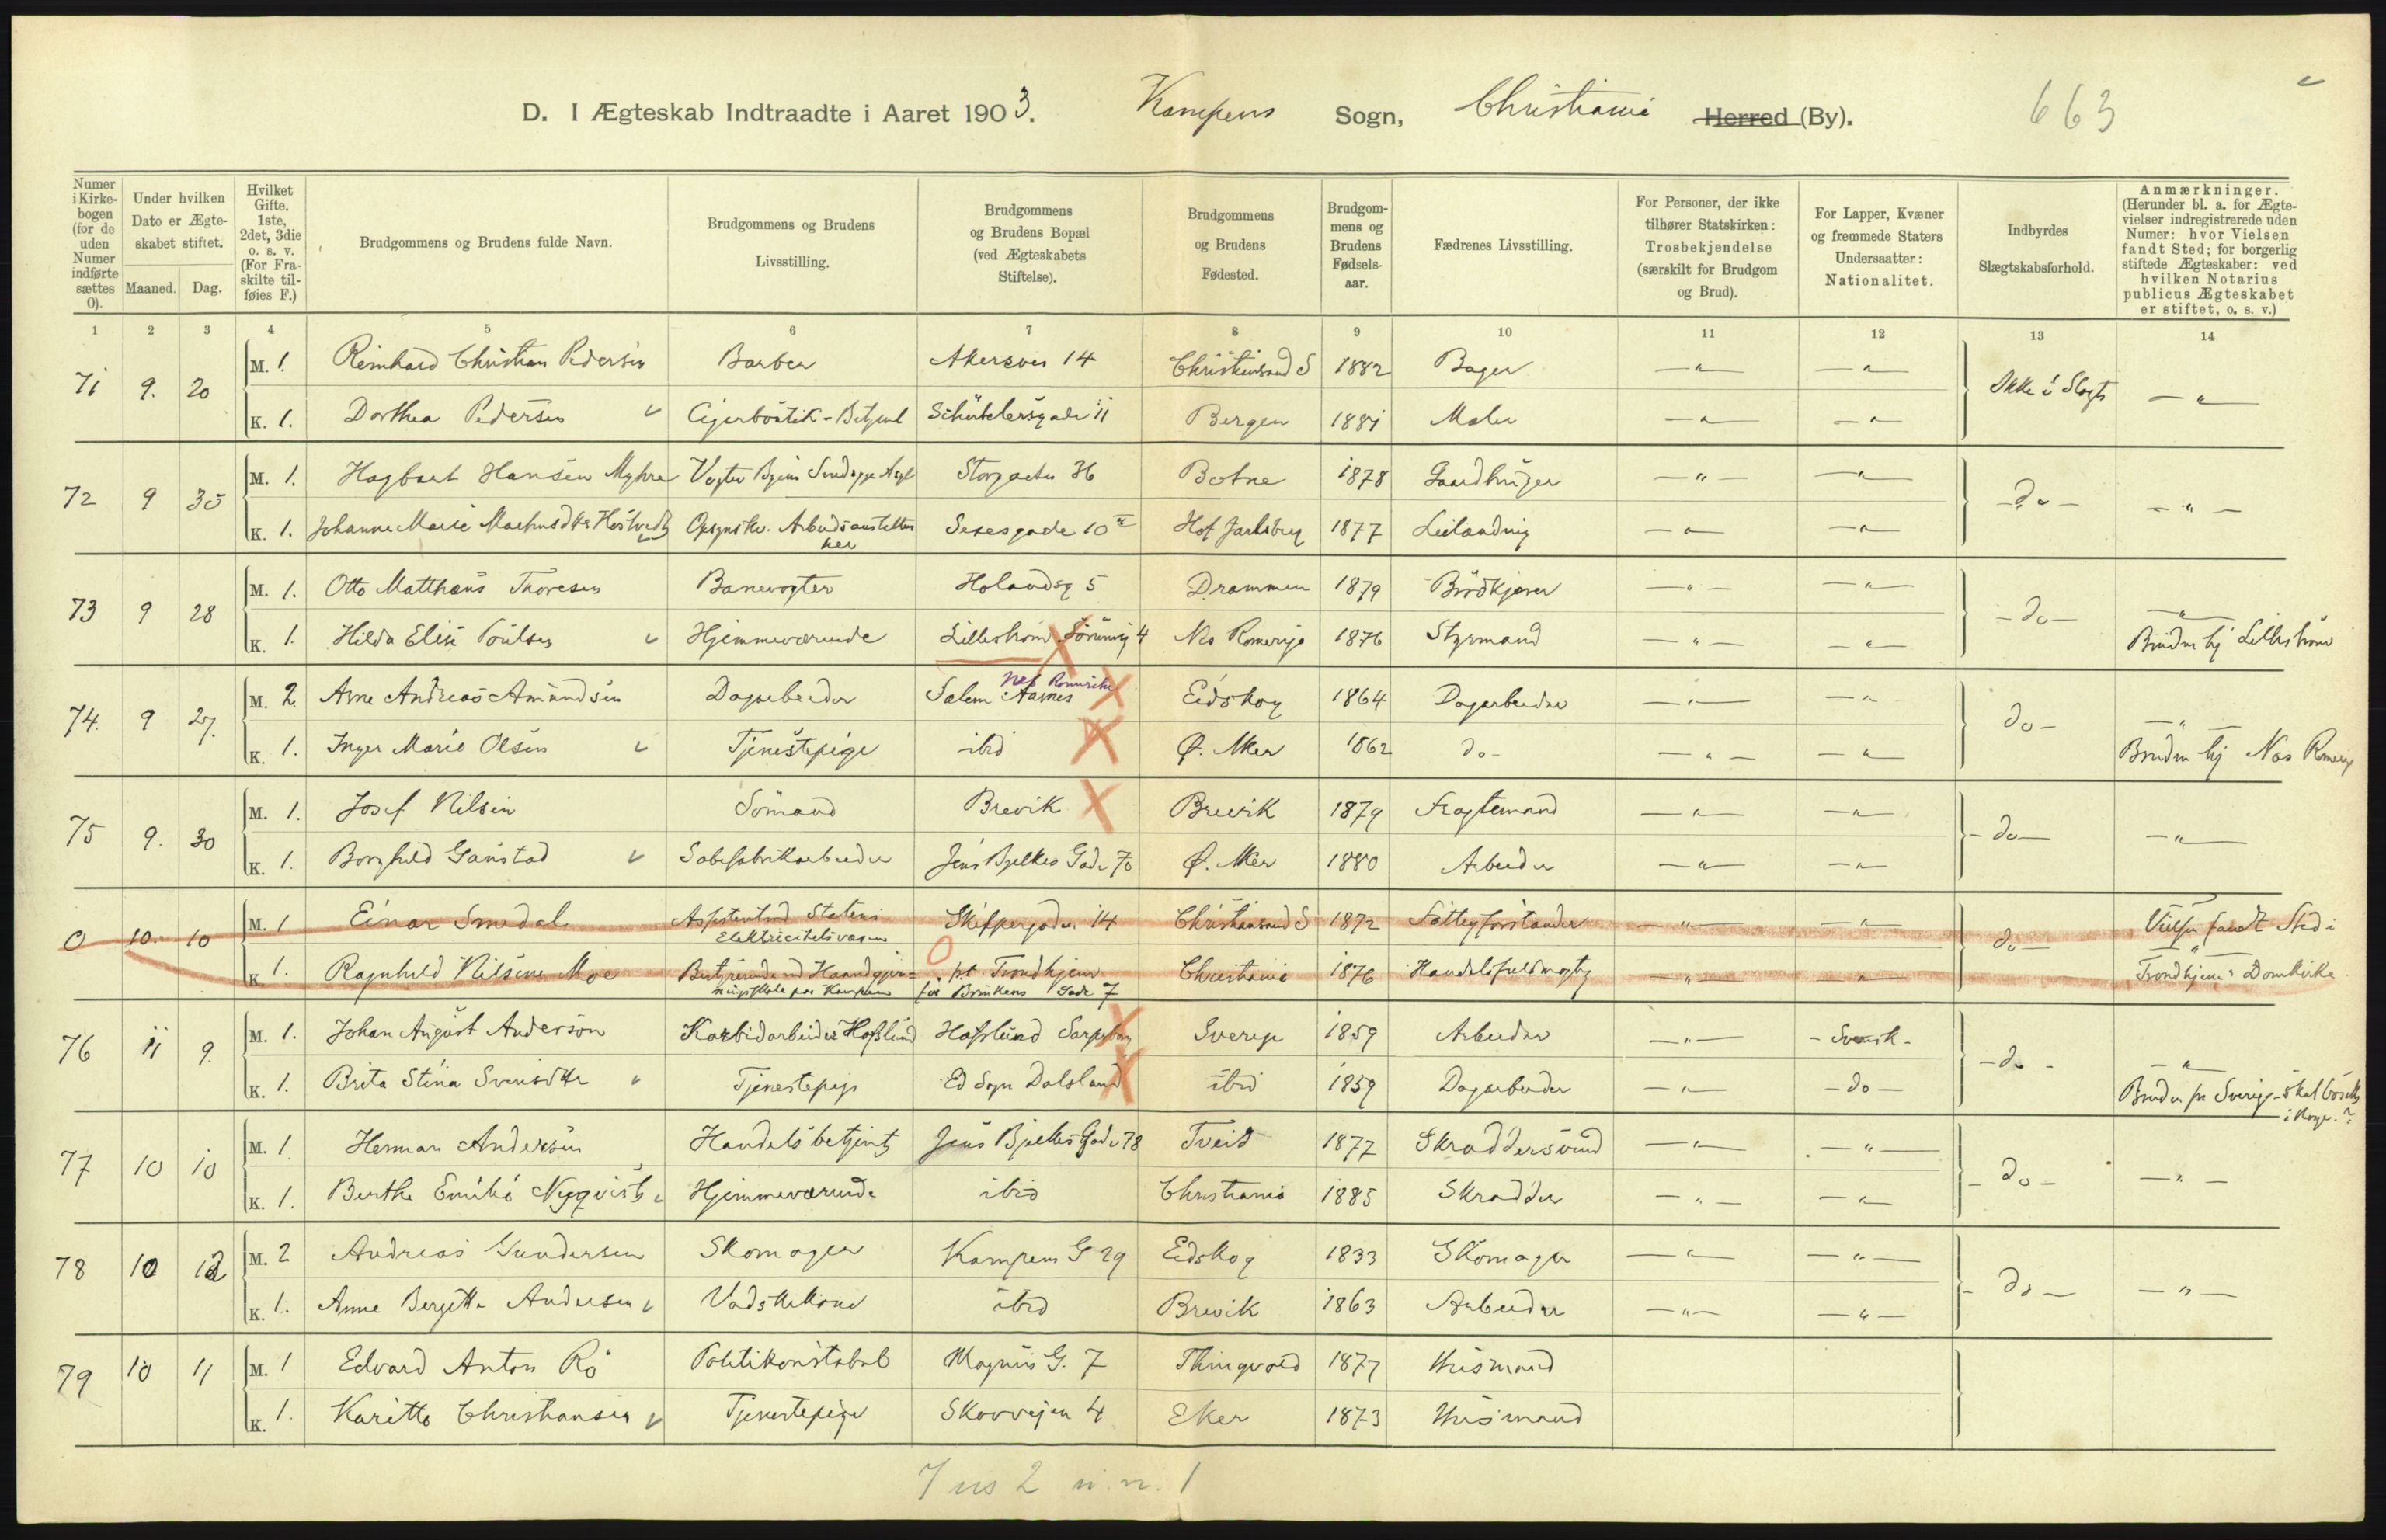 663
D. I Ægteskab Indtraadte i Aaret 1903. Kampens Sogn, Christiania Herred (By).
Numer i Kirkebogen (for de uden Numer indførte sættes 0).
Under hvilken Dato er Ægteskabet stiftet.
Maaned. Dag.
Hvilket Gifte. 1ste, 2det, 3die o. s. v. (For Fraskilte tilføies F.)
Brudgommens og Brudens fulde Navn.
Brudgommens og Brudens Livsstilling.
Brudgommens og Brudens Bopæl (ved Ægteskabets Stiftelse).
Brudgommens og Brudens Fødested.
Brudgommens og Brudens Fødselsaar.
Fædrenes Livsstilling.
For Personer, der ikke tilhører Statskirken: Trosbekjendelse (særskilt for Brudgom og Brud).
For Lapper, Kvæner og fremmede Staters Undersaatter: Nationalitet.
Indbyrdes Slægtskabsforhold.
Anmærkninger. (Herunder bl. a. for Ægtevielser indregistrerede uden Numer: hvor Vielsen fandt Sted; for borgerlig stiftede Ægteskaber: ved hvilken Notarius publicus Ægteskabet er stiftet, o. s. v.)
1 2 3 4 5 6 7 8 9 10 11 12 13 14
71 9. 20 M. 1. Reinhard Christian Pedersen Barber Akersvei 14 Christiansand S 1882 Bager — " — — " — Ikke i Slægt — " —
K. 1. Dorthea Pedersen Cigarbutik-Betjent Schübelersgade 11 Bergen 1881 Maler — " — — " —
72 9 30 M. 1. Hagbart Hansen Myhre Vogter Storgaden 36 Botne 1878 Gaardbruger — " — — " — - do - — " —
K. 1. Johanne Marie Arbeidsanstalten Sexesgade 10 Hof Jarlsberg 1877 Leilænding — " — — " —
73 9 28 M. 1. Otto Matthæus Thoresen Banevogter Holandsg 5 Drammen 1879 Bødkjever — " — — " — - do - — " —
K. 1. Hilda Elise Poulsen Hjemmeværende Lillestrøm 4 Nes Romerige 1876 Styrmand — " — — " — Bruden hj Lillestrøm
74. 9 27. M. 2. Arne Andreas Amundsen Dagarbeider Salem Aarnes Nes Romerike Eidskog 1864 Dagarbeider — " — — " — do - — " —
K. 1. Inger Marie Olsen Tjenestepige ibid Ø. Aker 1862 do - — " — — " — Bruden hj Nes Romerige
75 9. 30 M. 1. Josef Nilsen Sømand Brevik Brevik 1879 Fragtemand — " — — " — - do - — " —
K. 1. Borghild Gaustad Sæbefabrikarbeider Jens Bjelkes Gade 70 Ø. Aker 1880 Arbeider — " — — " —
0 10. 10 M. 1 Einar Smedal Assistent ved Statens Elektricitetsvæsen Skippergaden 14 Christiansand S 1872 Fattigforstander — " — — " — do - Vielsen fandt Sted i
K. 1. Ragnhild Nilsine Moe Bestyrerinde ved Haandgjerningsskole paa Kampen pt Trondhjem før Brinkens Gade 7 Christiania 1876 Handelsfuldmægtig — " — — " — Trondhjems Domkirke.
76 11 9. M. 1. Johan August Anderson Karbidarbeider Hafslund Hafslund Sarpsborg Sverige 1859 Arbeider — " — - Svensk - - do - — " —
K. 1. Brita Stina Svensdtr Tjenestepige Ed Sogn Dalsland ibid 1859 Dagarbeider — " — - do - Bruden fra Sverige - skal bosætte i Norge.?
77 10 10 M. 1. Herman Andersen Handelsbetjent Jens Bjelkes Gade 78 Tveit 1877 Skræddersvend — " — — " — - do - — " —
K. 1. Berthe Emilie Nyqvist Hjemmeværende ibid Christiania 1885 Skrædder — " — — " —
78 10 12 M. 2 Andreas Gundersen Skomager Kampens G 29 Eidskog 1833 Skomager — " — — " — - do - — " —
K. 1. Anne Bergitte Andersen Vadskekone ibid Brevik 1863 Arbeider — " — — " —
79 10 11 M. 1 Edvard Anton Rø Politikonstabel Magnus G. 7 Thingvold 1877 Husmand
K. 1. Karitte Christiansen Tjenestepige Skovvejen 4 Eker 1873 Husmand